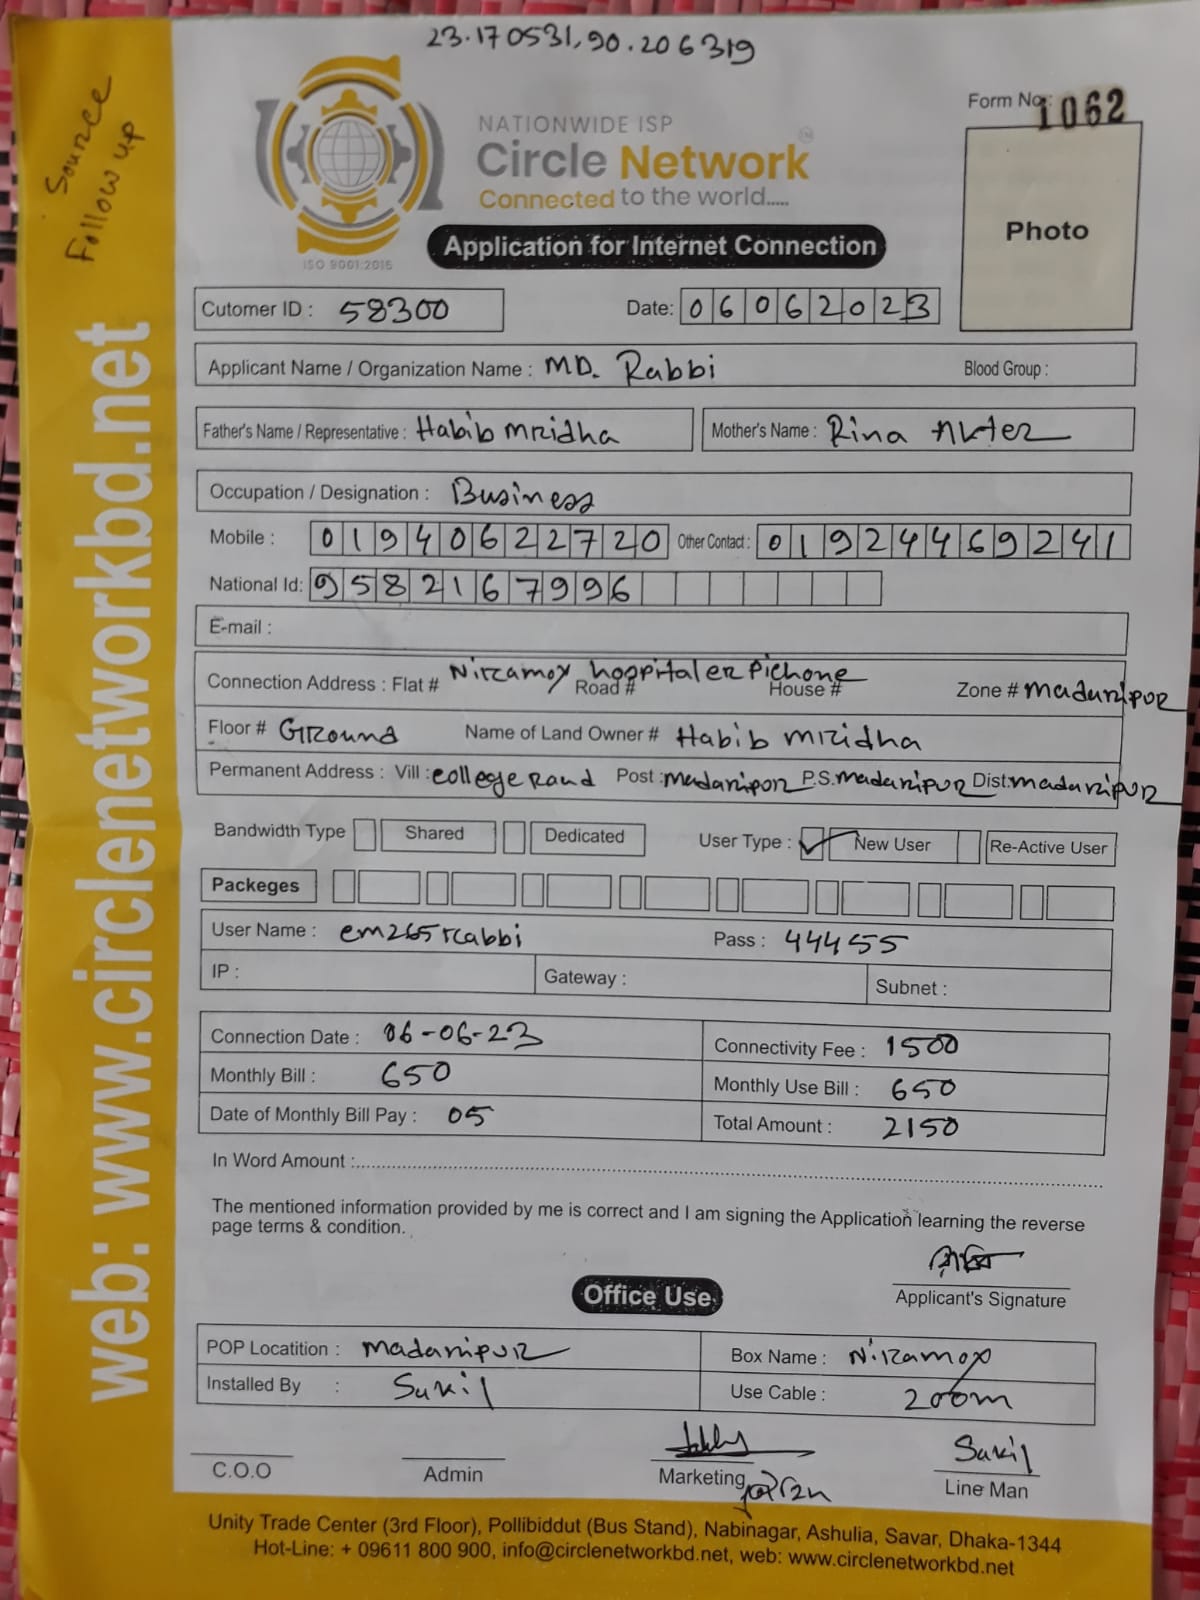 23.170531,90.206319
Source
Follow up
Form No: 1062
NATIONWIDE ISP
Circle Network
Connected to the world.....
ISO 9001:2015
Application for Internet Connection
Photo
Cutomer ID : 58300
Date: 06062023
Applicant Name / Organization Name : MD. Rabbi
Blood Group :
Father's Name / Representative : Habib mridha
Mother's Name : Rina Akter
Occupation / Designation : Business
Mobile : 01940622720 Other Contact : 01924469241
National Id: 9582167996
E-mail :
Niramoy hospitaler Pichone
Connection Address : Flat # Road # House # Zone # madaripur
Floor # Ground Name of Land Owner # Habib mridha
Permanent Address : Vill : college Raod Post : madaripor P.S. madaripur Dist: madaripur
Bandwidth Type Shared Dedicated User Type : ✓ New User Re-Active User
Packeges
User Name : em265rabbi Pass : 44455
IP : Gateway : Subnet :
Connection Date : 06-06-23 Connectivity Fee : 1500
Monthly Bill : 650 Monthly Use Bill : 650
Date of Monthly Bill Pay : 05 Total Amount : 2150
In Word Amount :
The mentioned information provided by me is correct and I am signing the Application learning the reverse
page terms & condition.
Applicant's Signature
Office Use
POP Locatition : madaripur Box Name : Niramoy
Installed By : Sakil Use Cable : 200m
Sakil
C.O.O Admin Marketing Line Man
Unity Trade Center (3rd Floor), Pollibiddut (Bus Stand), Nabinagar, Ashulia, Savar, Dhaka-1344
Hot-Line: + 09611 800 900, info@circlenetworkbd.net, web: www.circlenetworkbd.net
web: www.circlenetworkbd.net